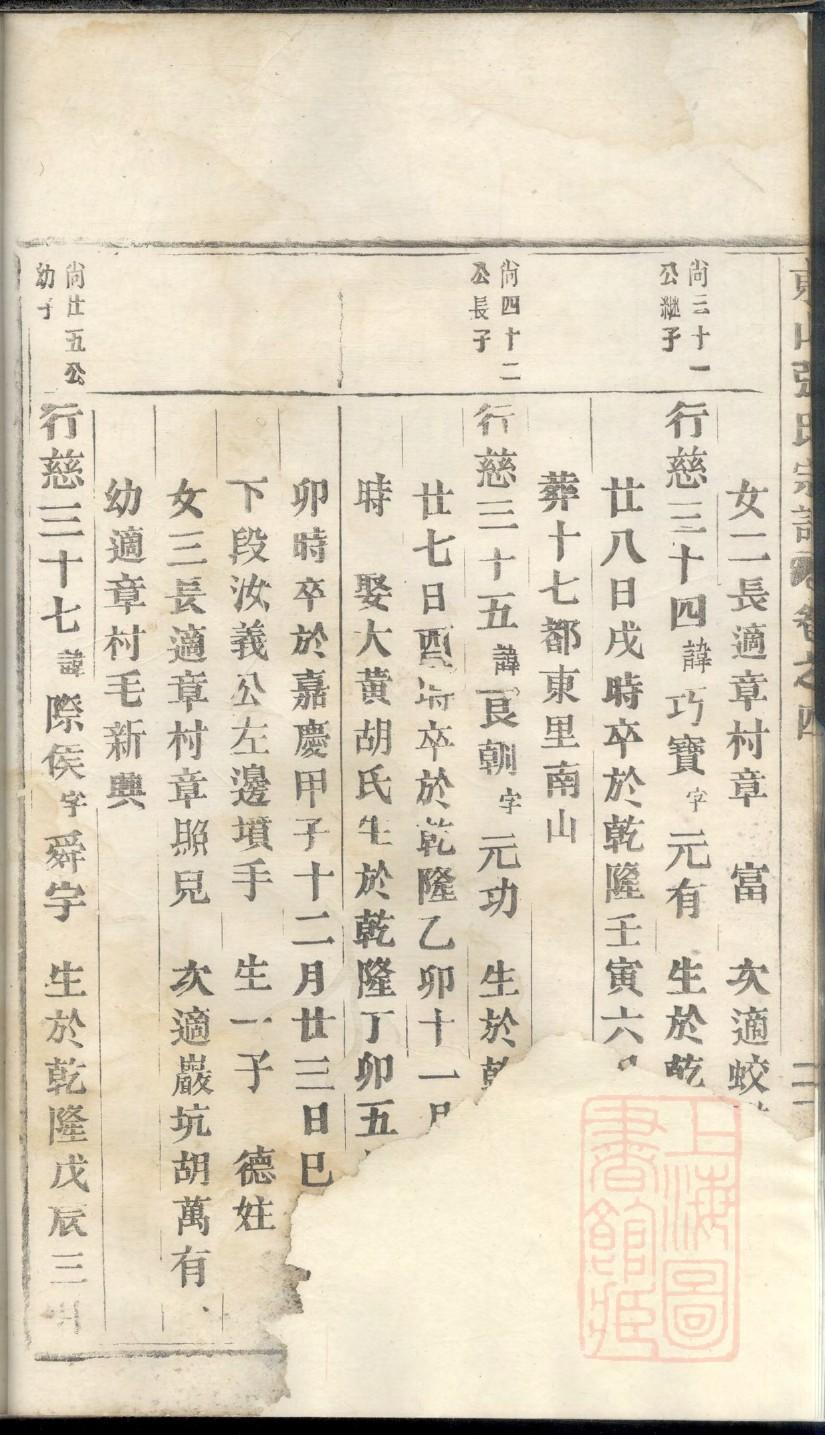 東山張氏宗譜 卷之四
女二長適章村章 富 次適蛟
尚三十一
公繼子
行慈三十四諱巧寶字元有 生於乾
廿八日戌時卒於乾隆壬寅六
葬十七都東里南山
尚四十二
公長子
行慈三十五諱良朝字元功 生於乾
廿七日酉時卒於乾隆乙卯十一月
時 娶大黃胡氏生於乾隆丁卯五
卯時卒於嘉慶甲子十二月廿三日巳
下段汝義公左邊墳手 生一子 德妵
女三長適章村章照兒 次適巖坑胡萬有
幼適章村毛新興
尚廿五公
幼子
行慈三十七諱際侯字舜宇 生於乾隆戊辰三月
上海圖書館藏